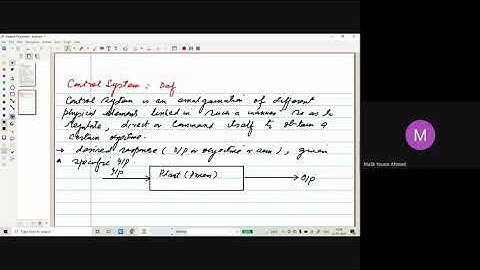 Control System: Def
Control system is an amalgamation of different
physical elements linked in such a manner so as to
regulate, direct or command itself to obtain a
certain objective.
→ desired response (o/p or objective or aim), given
a specific i/p
i/p
Plant (Process)
o/p
M
Malik Younis Ahmed
Type here to search